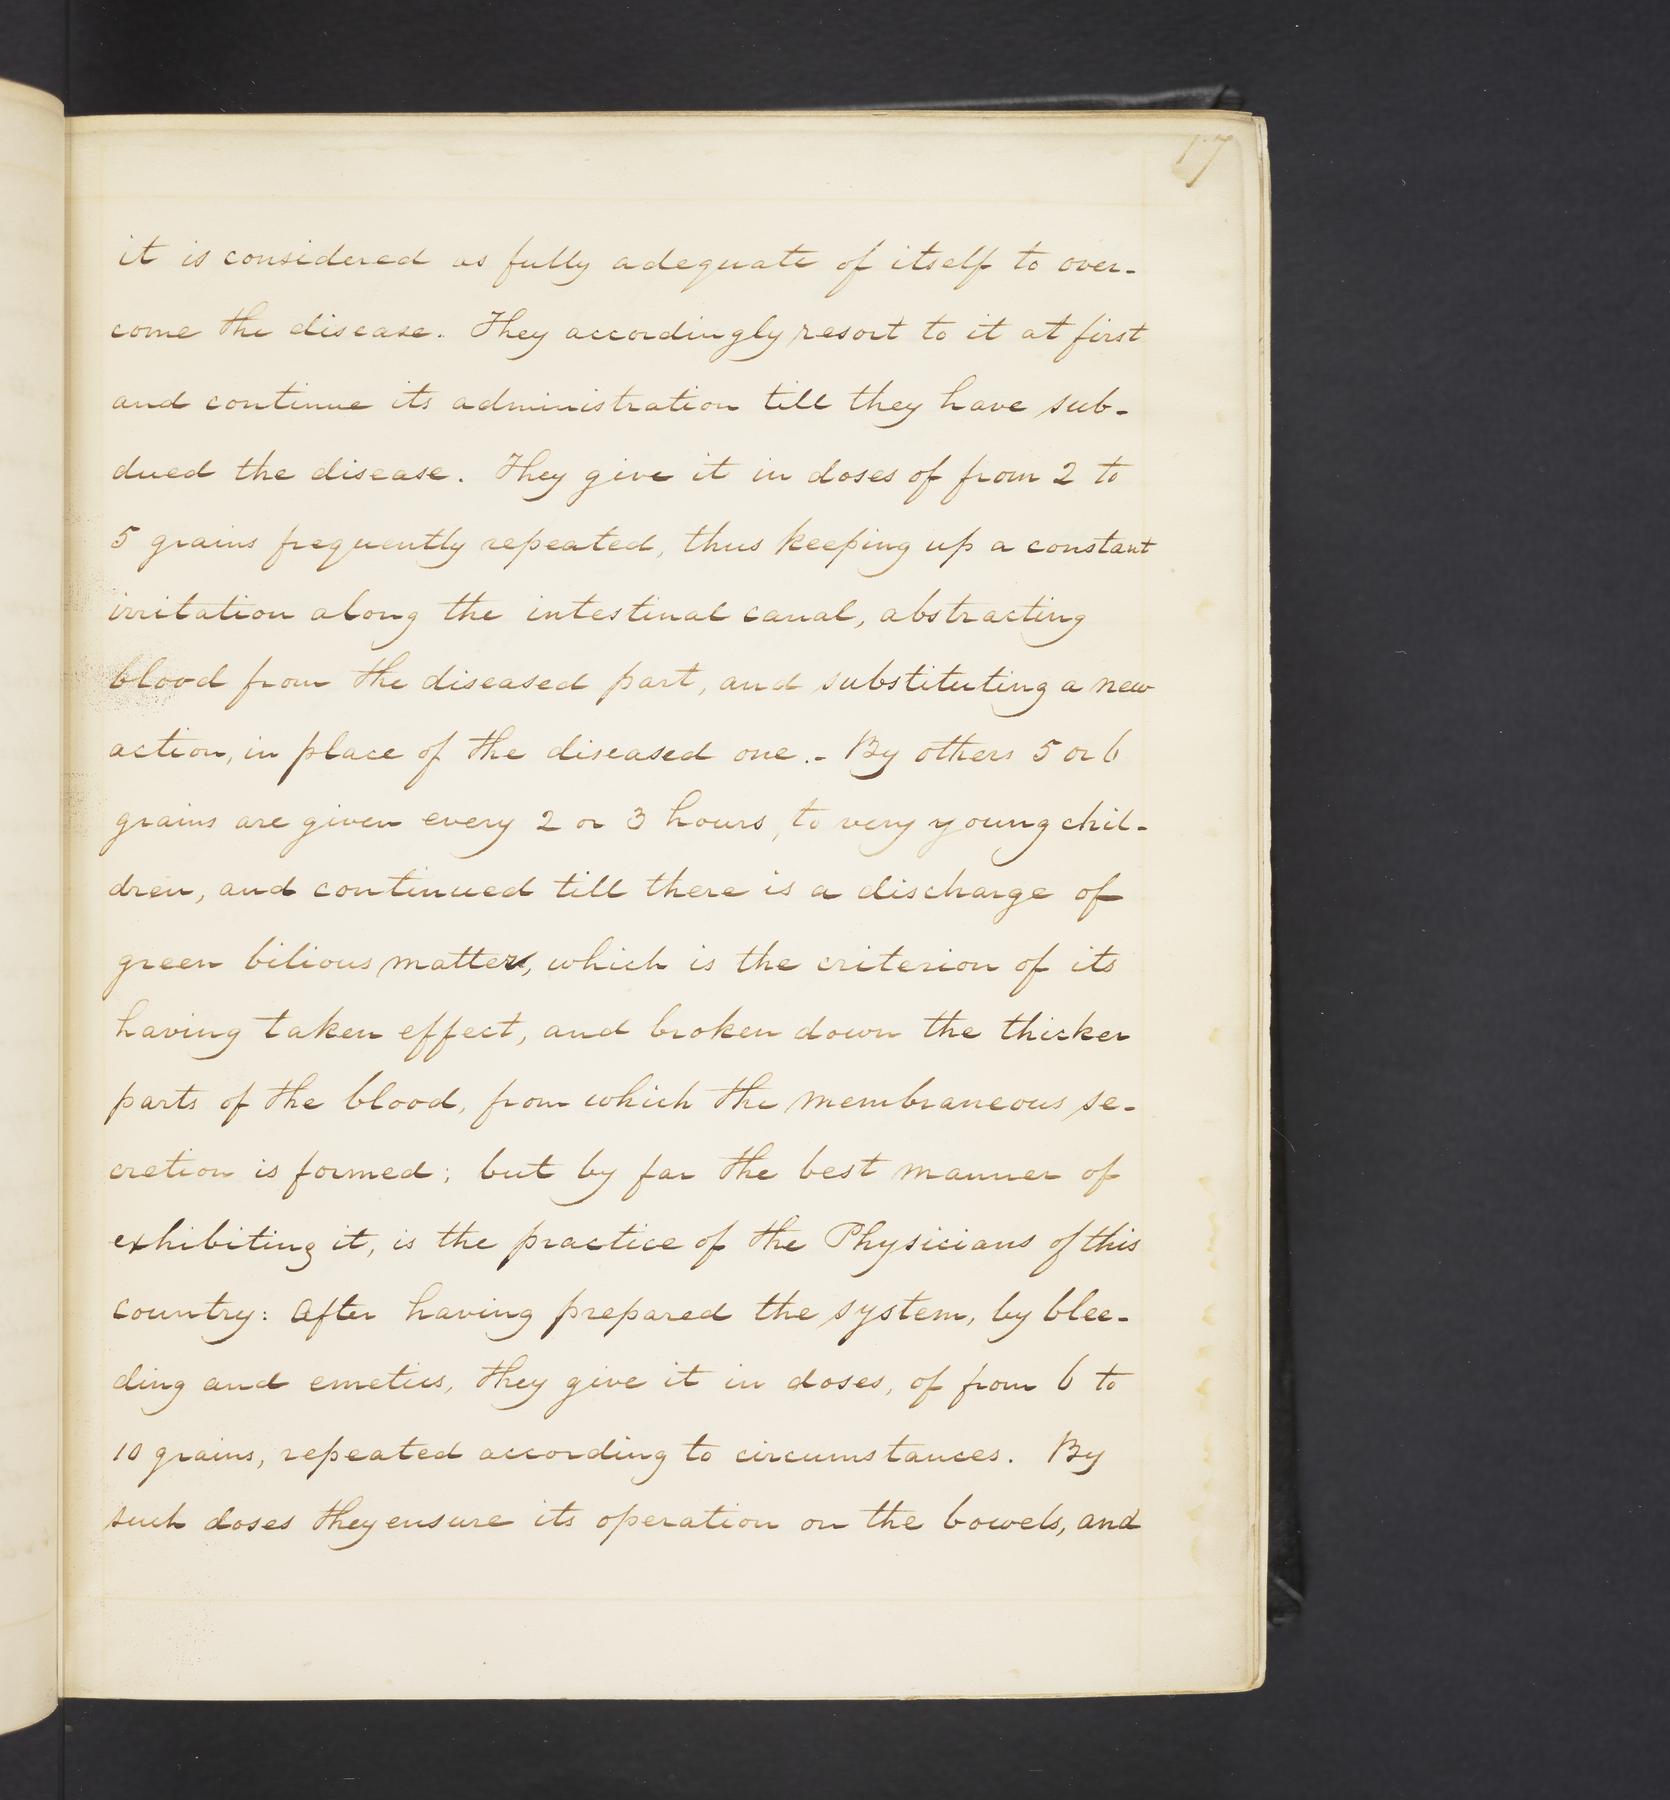 17
it is considered as fully adequate of itself to over-
come the disease. They accordingly resort to it at first
and continue its administration till they have sub-
dued the disease. They give it in doses of from 2 to
5 grains frequently repeated, thus keeping up a constant
irritation along the intestinal canal, abstracting
blood from the diseased part, and substituting a new
action, in place of the diseased one.- By others 5 or 6
grains are given every 2 or 3 hours, to very young chil-
dren, and continued till there is a discharge of
green bilious matters, which is the criterion of its
having taken effect, and broken down the thicker
parts of the blood, from which the membraneous se-
cretion is formed; but by far the best manner of
exhibiting it, is the practice of the Physicians of this
country: After having prepared the system, by blee-
ding and emetics, they give it in doses, of from 6 to
10 grains, repeated according to circumstances. By
such doses they ensure its operation on the bowels, and